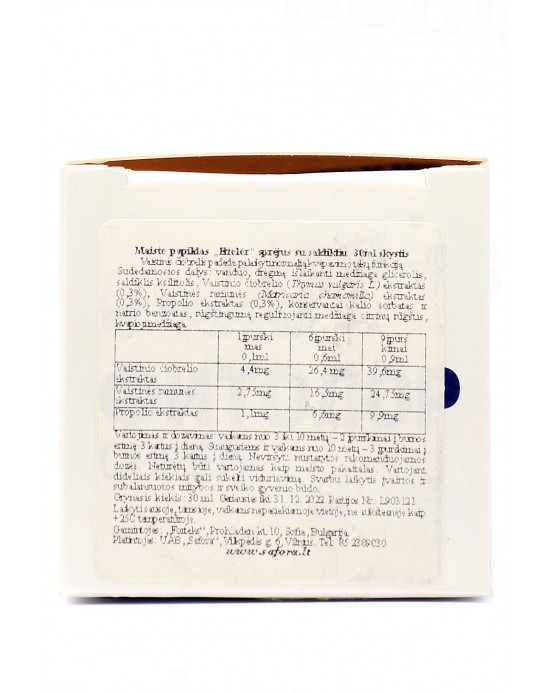 Maisto papildas „Fitolor“ sprėjus su saldikliu 30ml skystis
Vaistinis čiobrelis padeda palaikyti normalią kvėpavimo takų funkciją
Sudedamosios dalys: vanduo, drėgmę išlaikanti medžiaga glicerolis,
saldiklis ksilitolis, Vaistinio čiobrelio (Thymus vulgaris L.) ekstraktas
(0,3%), Vaistinės ramunės (Matricaria chamomilla) ekstraktas
(0,3%), Propolio ekstraktas (0,3%), konservantai kalio sorbatas ir
natrio benzoatas, rūgštingumą reguliuojanti medžiaga citrinų rūgštis,
kvapioji medžiaga
1 įpurški mas 0,1ml 6 įpurški mai 0,6ml 9 įpurš kimai 0,9ml
Vaistinio čiobrelio ekstraktas 4,4mg 26,4mg 39,6mg
Vaistinės ramunės ekstraktas 2,75mg 16,5mg 24,75mg
Propolio ekstraktas 1,1mg 6,6mg 9,9mg
Vartojimas ir dozavimas: vaikams nuo 3 iki 10 metų – 2 įpurškimai į burnos
ertmę 3 kartus į dieną. Suaugusiems ir vaikams nuo 10 metų – 3 įpurškimai į
burnos ertmę 3 kartus į dieną. Neviršyti nustatytos rekomenduojamos
dozės. Neturėtų būti vartojamas kaip maisto pakaitalas. Vartojant
dideliais kiekiais gali sukelti viduriavimą. Svarbu laikytis įvairios ir
subalansuotos mitybos ir sveiko gyvenimo būdo.
Grynasis kiekis: 30 ml. Geriausias iki 31.12.2022 Partijos Nr.: L903121
Laikyti sausoje, tamsioje, vaikams nepasiekiamoje vietoje, ne aukštesnėje kaip
+25C temperatūroje.
Gamintojas: „Floriteks“, Prohladen kt. 10, Sofia, Bulgarija
Platintojas: UAB „Safora“, Vilkpėdės g. 6, Vilnius. Tel: 85 2389030
www.safora.lt